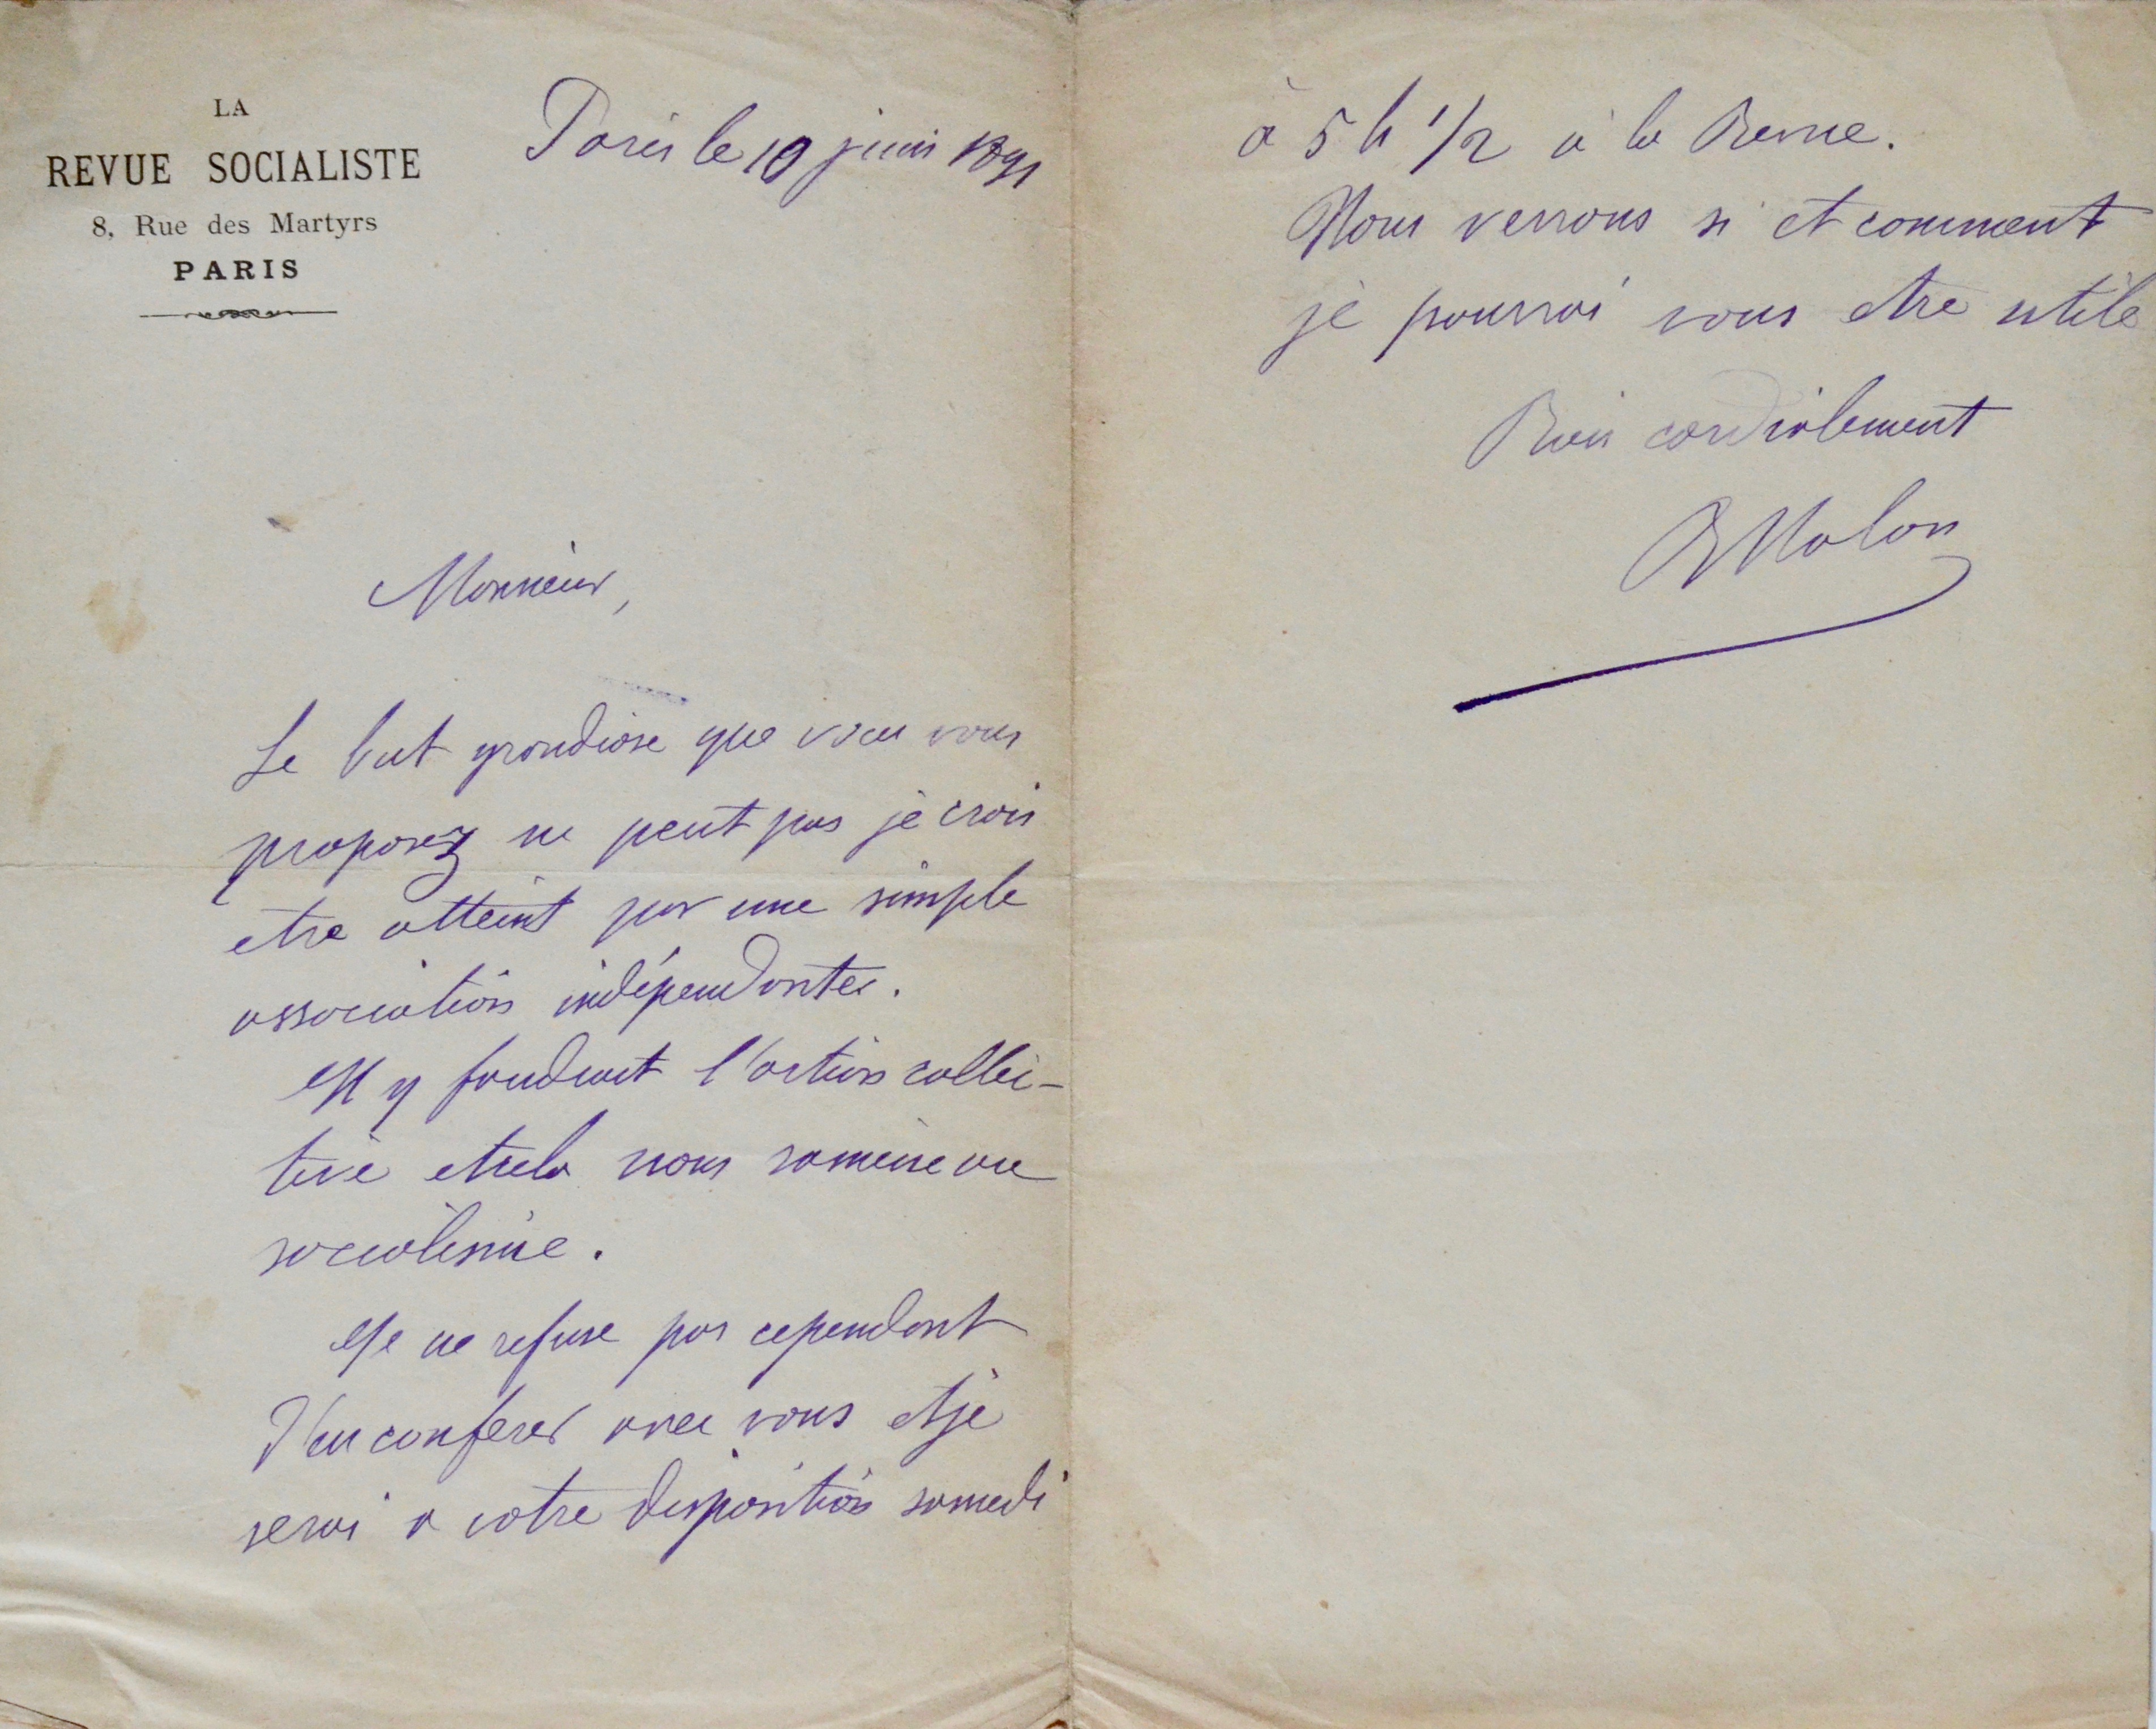 LA
REVUE SOCIALISTE
8, Rue des Martyrs
PARIS
Paris le 19 juin 1891
Monsieur,
Le but grandiose que vous vous
proposez ne peut pas je crois
etre atteint par une simple
association indépendantes.
Il y faudrait l'action collec-
tive et cela nous ramène au
socialisme.
Je ne refuse pas cependant
d'en conferer avec vous et je
serai a votre disposition samedi
à 5 h 1/2 à la Revue.
Nous verrons si et comment
je pourrai vous etre utile
Bien cordialement
B Malon